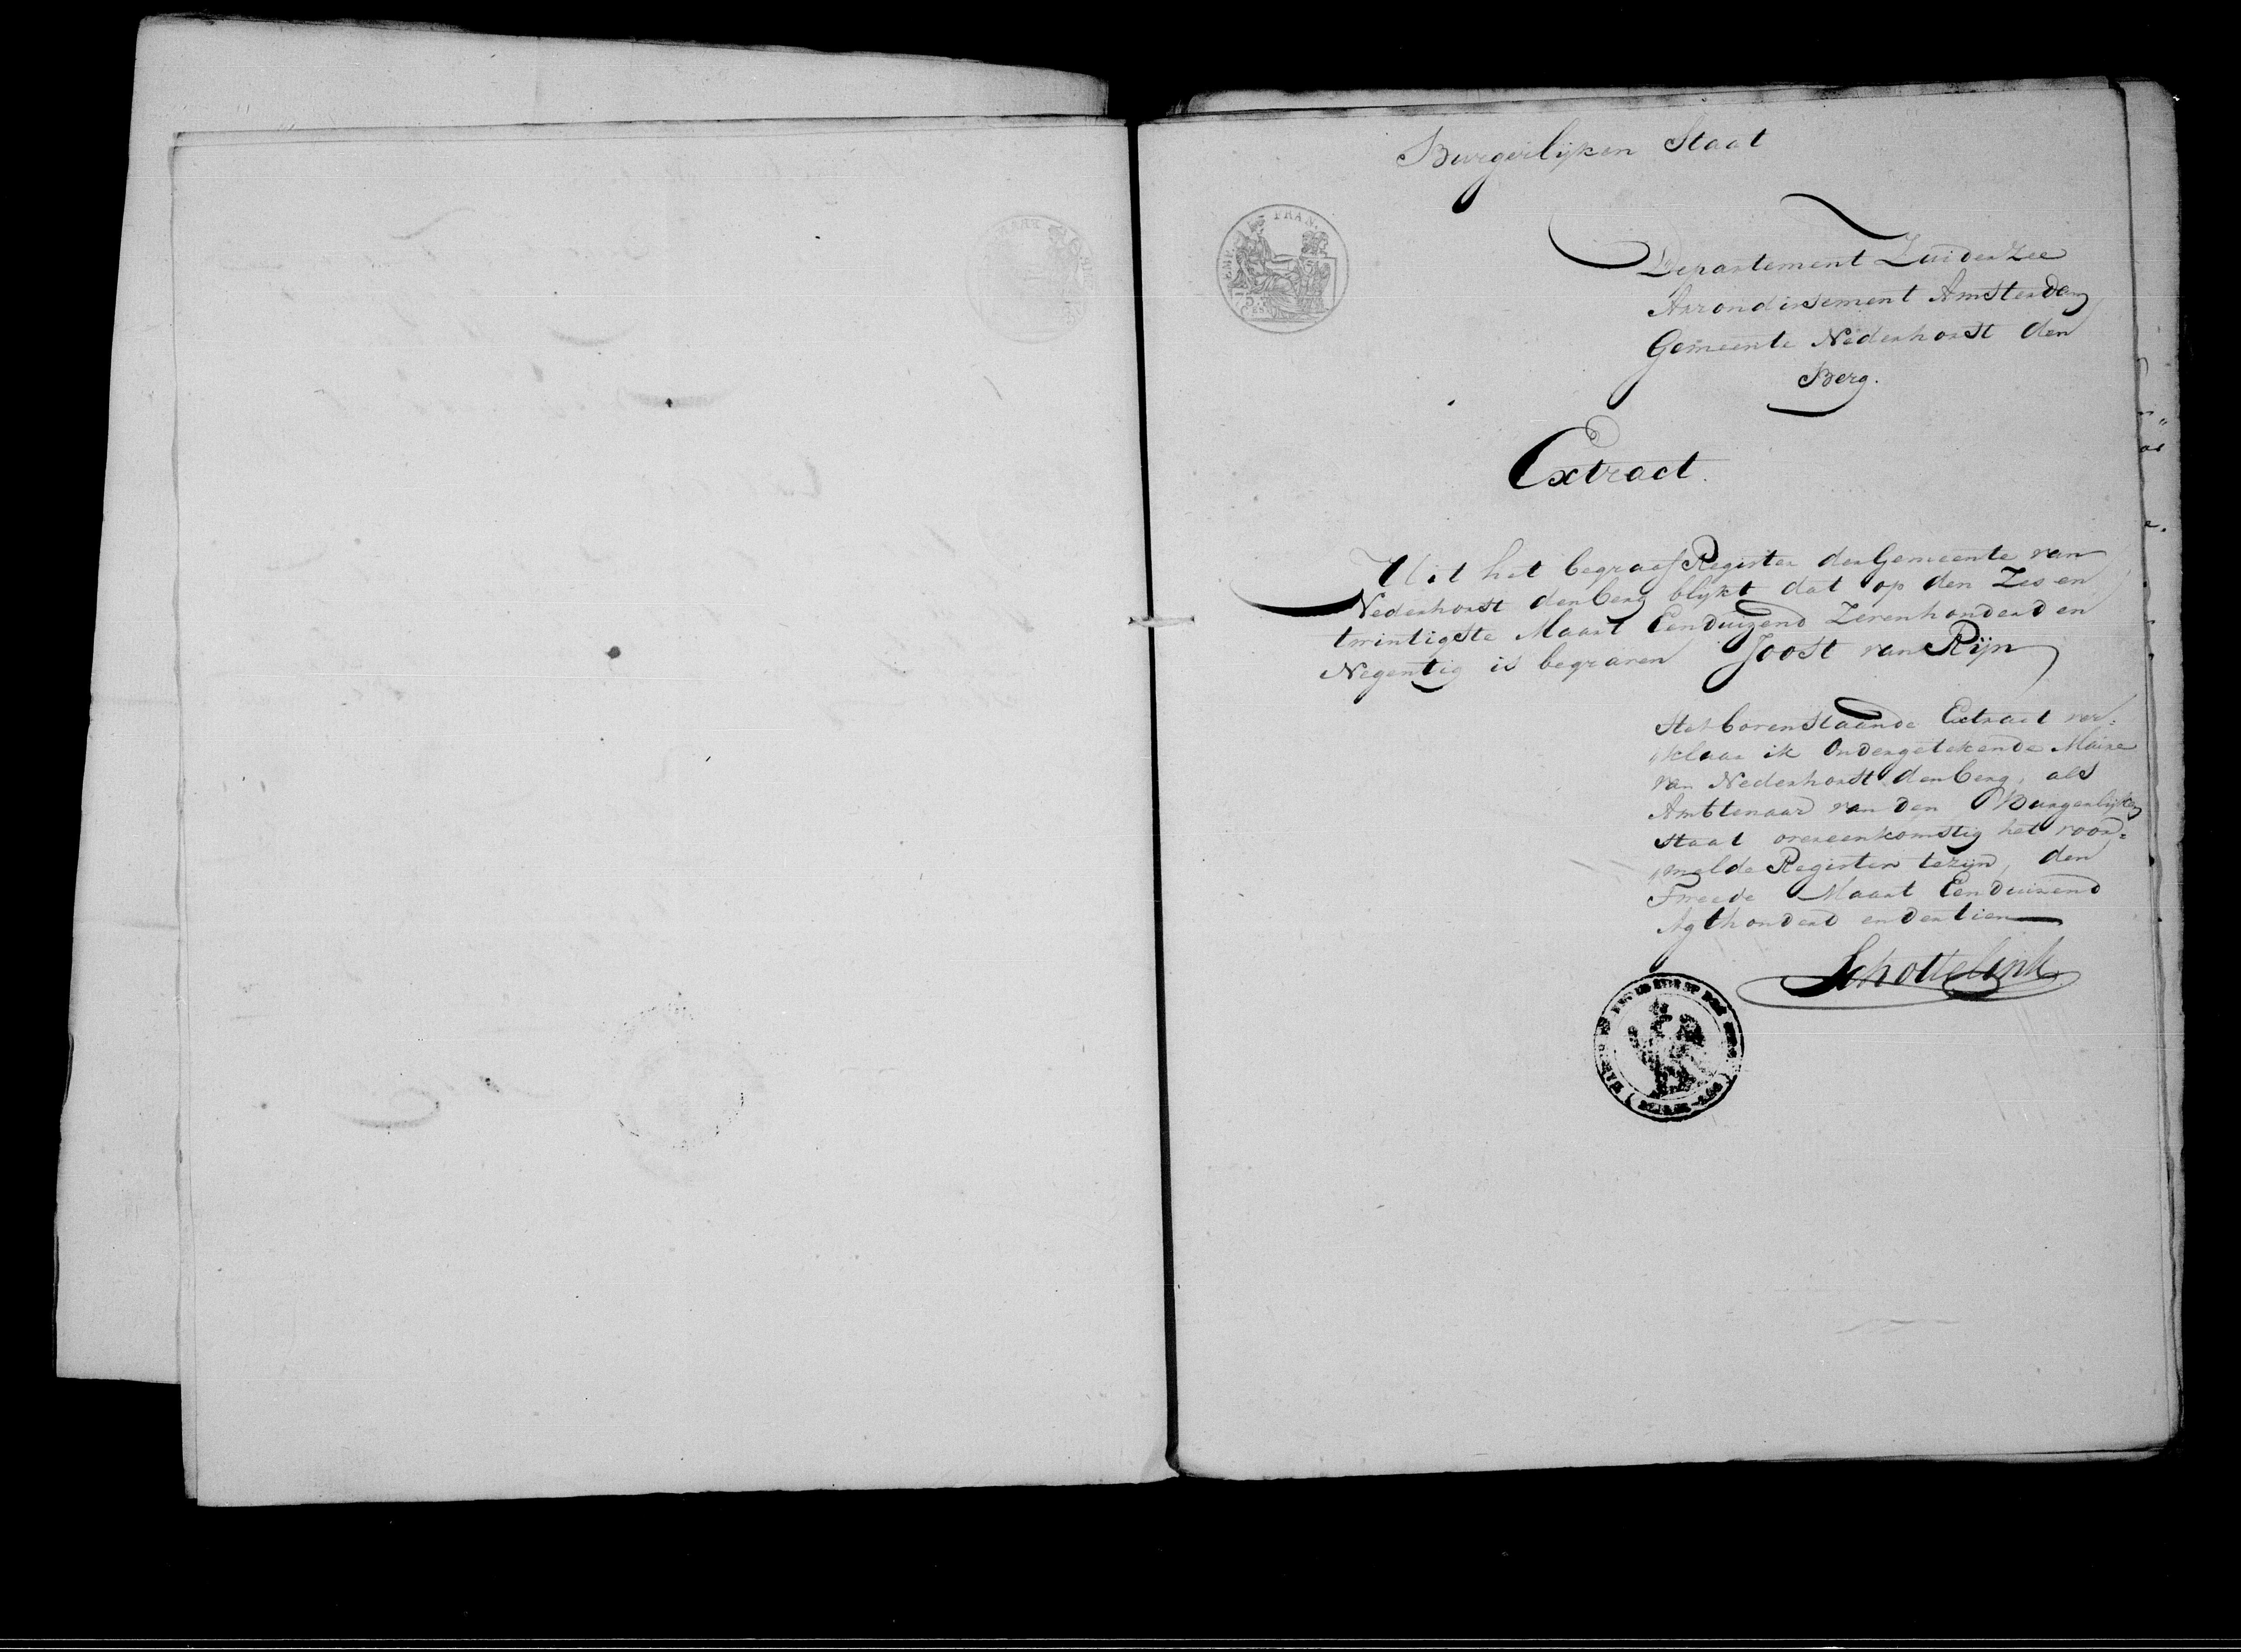 Burgerlijken Staat
EMPIRE FRAN.
75.
CES
Departement Zuiderzee
Arrondissement Amsterdam
Gemeente Nederhorst den
Berg.
Extract.
Uit het begraaf Register der Gemeente van
Nederhorst den berg blykt dat op den Zes en
twintigste Maart Eenduizend Zevenhonderd en
Negentig is begraven Joost van Rijn
Het bovenstaande Extract ver=
klaar ik Ondergetekende Maire
van Nederhorst den berg, als
Ambtenaar van den Burgerlijken
Staat overeenkomstig het voor=
melde Register te zijn, den
Tweede Maart Eenduizend
Agthonderd en dertien
Schottelink